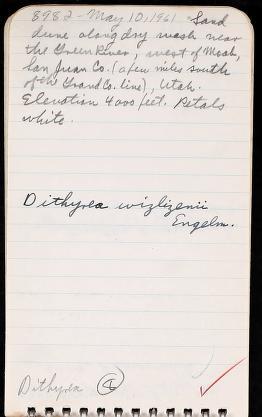 8982 - May 10, 1961 Sand
dune along dry wash near
the Green River, west of Moab,
San Juan Co. (a few miles south
of the Grand Co. line), Utah.
Elevation 4000 feet. Petals
white.
Dithyrea wizlizenii
Engelm.
Dithyrea